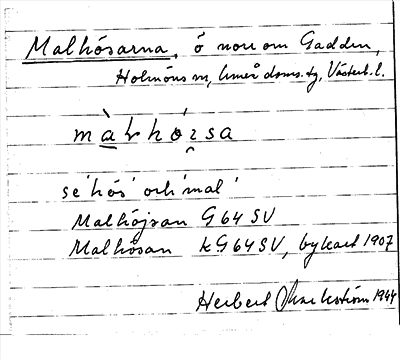 Malhösarna, ö norr om Gadden,
Holmöns sn, Umeå doms.tg, Västerb.l.
màlhósa
se 'hös' och 'mal'
Malhöjsan G64SV
Malhösan kG64SV, bykart 1907
Herbert 1944